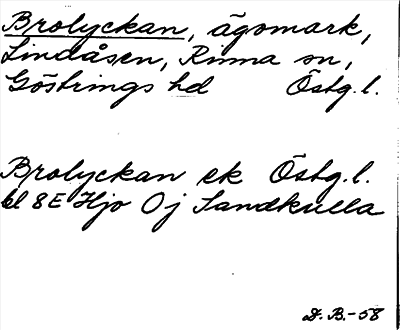 Brolyckan, ägomark,
Lindåsen, Rinna sn,
Göstrings hd Östg.l.
Brolyckan ek Östg.l.
bl 8E Hjo Oj Sandkulla
D.B.-58